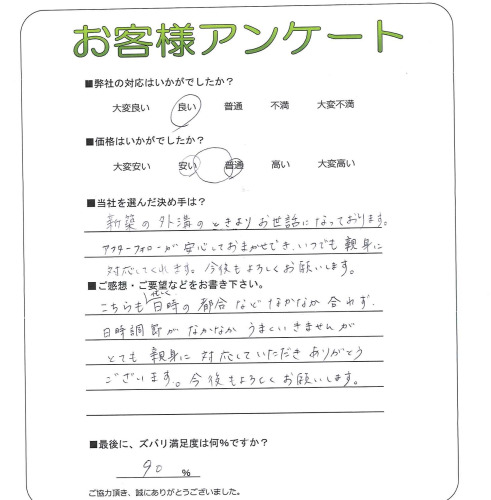 お客様アンケート
■弊社の対応はいかがでしたか？
大変良い 良い 普通 不満 大変不満
■価格はいかがでしたか？
大変安い 安い 普通 高い 大変高い
■当社を選んだ決め手は？
新築の外溝のときよりお世話になっております。
アフターフォローが安心しておまかせでき、いつでも親身に
対応してくれます。今後もよろしくお願いします。
■ご感想・ご要望などをお書き下さい。
こちらも日時の都合などなかなか合わず、
日時調節がなかなかうまくいきませんが
とても親身に対応していただきありがとう
ございます。今後もよろしくお願いします。
■最後に、ズバリ満足度は何％ですか？
90 %
ご協力頂き、誠にありがとうございました。